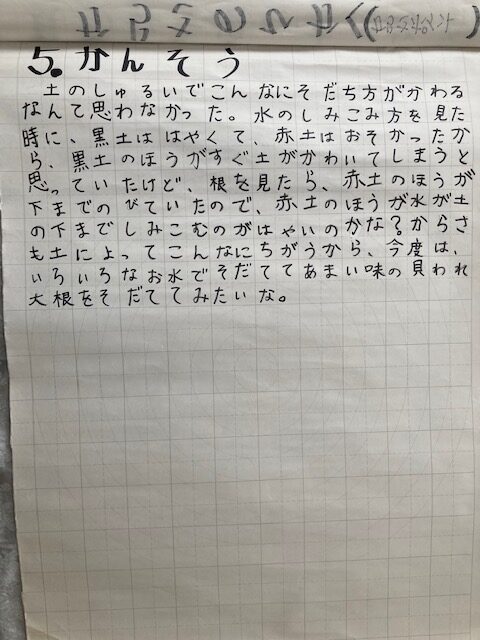 5.かんそう
土のしゅるいでこんなにそだち方がかわる
なんて思わなかった。水のしみこみ方を見た
時に、黒土ははやくて、赤土はおそかったか
ら、黒土のほうがすぐ土がかわいてしまうと
思っていたけど、根を見たら、赤土のほうが
下までのびていたので、赤土のほうが水が土
の下までしみこむのがはやいのかな？からさ
も土によってこんなにちがうから、今度は、
いろいろなお水でそだててあまい味の貝われ
大根をそだててみたいな。